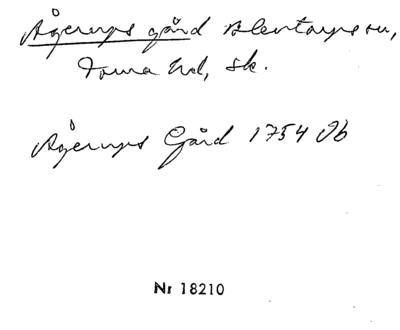 Ågerups gård Blentarps sn,
Torna hd, sk.
Ågerups Gård 1754 Jb
Nr 18210